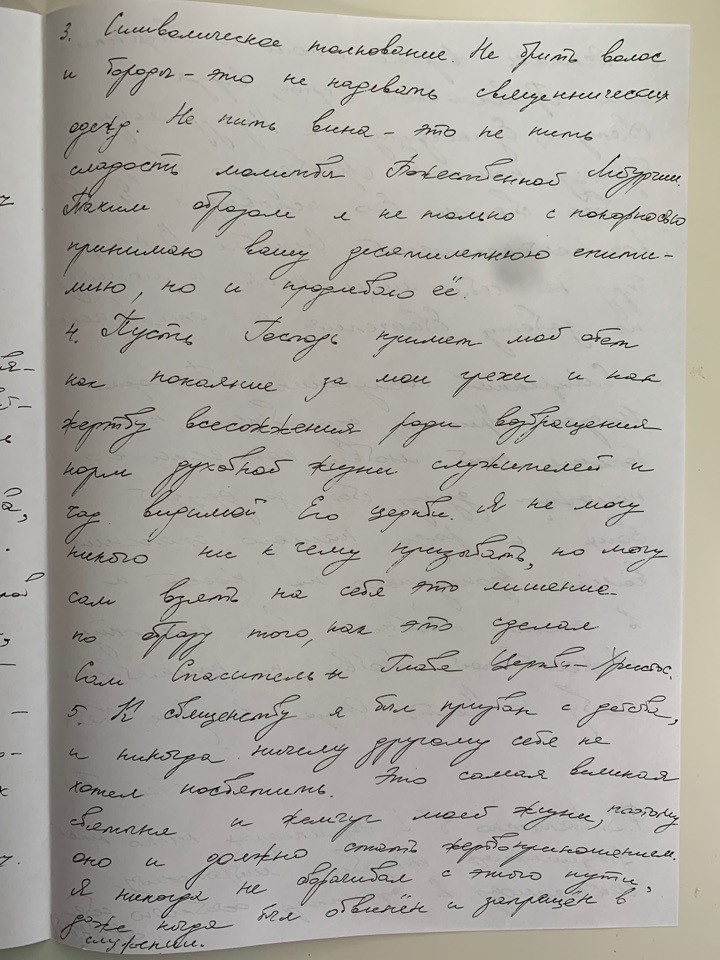 3. Символическое толкование. Не брить волос
и бороды – это не надевать священнических
одежд. Не пить вина – это не пить
сладость молитвы Божественной Литургии.
Таким образом я не только с покорностью
принимаю вашу десятилетнюю епити-
мию, но и продлеваю её.
4. Пусть Господь примет мой обет
как покаяние за мои грехи и как
жертву всесожжения ради возвращения
норм духовной жизни служителей и
чад видимой Его церкви. Я не могу
никого ни к чему призывать, но могу
сам взять на себя это лишение
по образу того, как это сделал
Сам Спаситель и Глава Церкви – Христос.
5. К священству я был призван с детства,
и никогда ничему другому себя не
хотел посвятить. Это самая великая
святыня и жемчуг моей жизни, поэтому
оно и должно стать жертвоприношением.
Я никогда не сворачивал с этого пути,
даже когда был обвинён и запрещён в
служении.